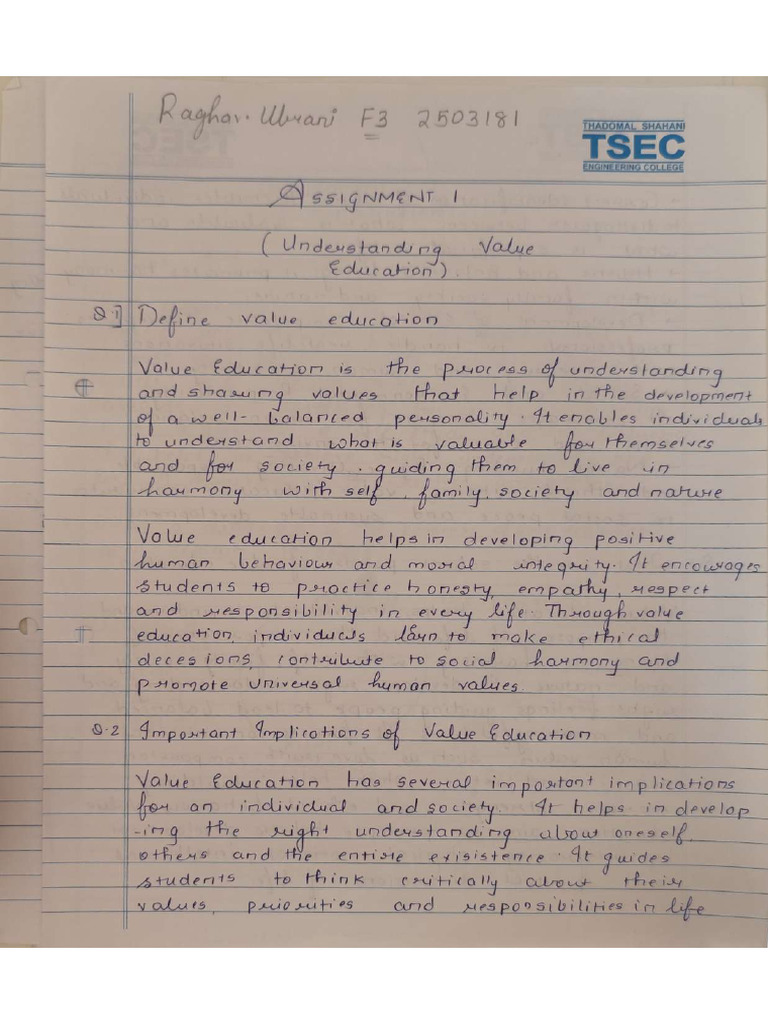 Raghav. Ubrani F3 2503181
THADOMAL SHAHANI
TSEC
ENGINEERING COLLEGE
ASSIGNMENT 1
(Understanding Value
Education)
Q.1] Define value education
Value Education is the process of understanding
and sharing values that help in the development
of a well-balanced personality. It enables individuals
to understand what is valuable for themselves
and for society. guiding them to live in
harmony with self, family, society and nature
Value education helps in developing positive
human behaviour and moral integrity. It encourages
students to practice honesty, empathy, respect
and responsibility in every life. Through value
education, individuals learn to make ethical
decesions, contribute to social harmony and
promote universal human values.
Q.2 Important Implications of Value Education
Value Education has several important implications
for an individual and society. It helps in develop
-ing the right understanding about oneself,
others and the entire exisistence. It guides
students to think critically about their
values, priorities and responsibilities in life